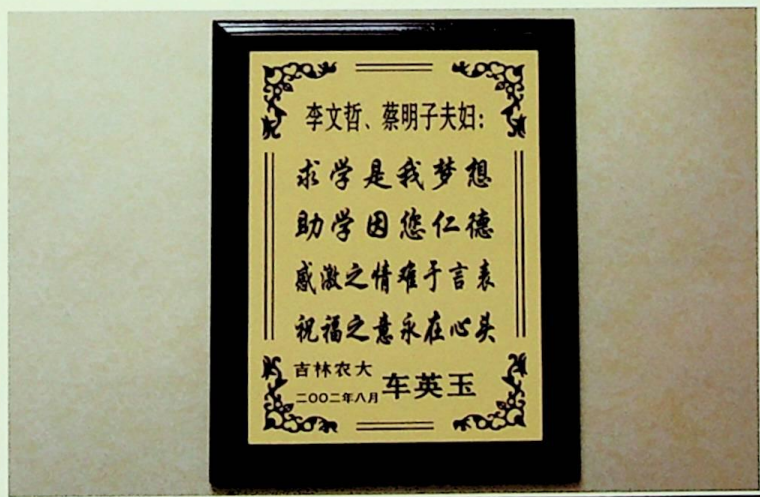 李文哲、蔡明子夫妇：
求学是我梦想
助学因您仁德
感激之情难于言表
祝福之意永在心头
吉林农大
二〇〇二年八月
车英玉